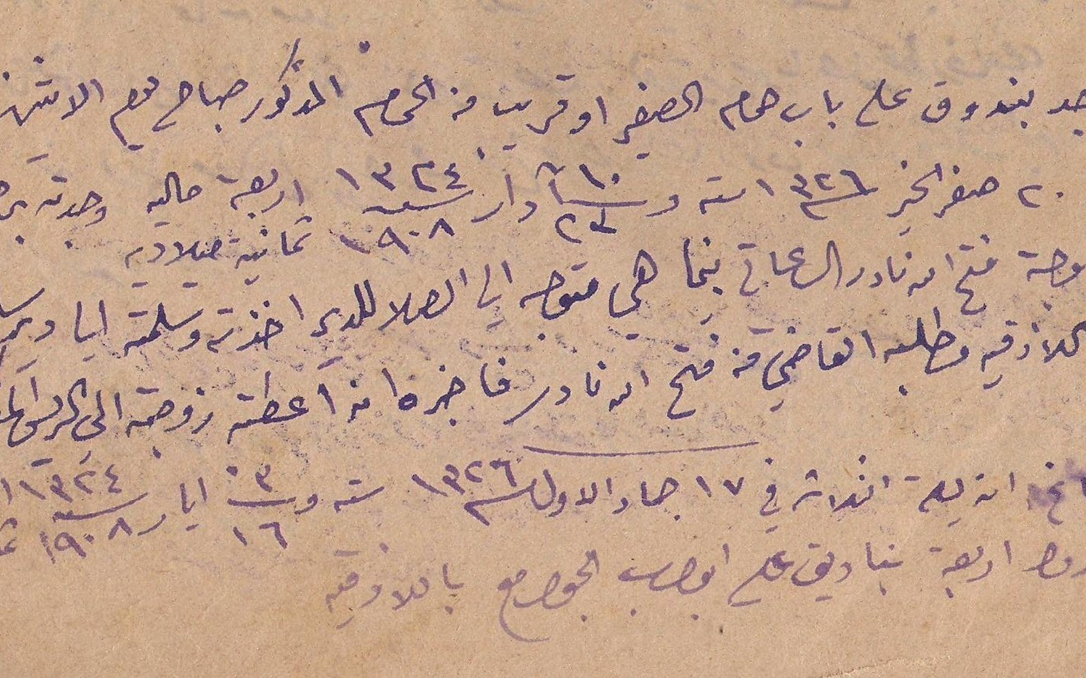 بندوق على باب حمام الصغير او قريب من الحمام المذكور صباح يوم الاثنين
٢٠ صفر الخير سنة ١٣٢٦ ستة و ١٠ / ٢٣ آدار سنة ١٣٢٤ / ١٩٠٨ اربعة مالية وجدته
ثمانية ميلادية
زوجة فتح الله نادر الساعاتي بينما هي متوجهة الى الصلا للدير اخذته وسلمته
اللاذقيه وطلبه القاضي من فتح الله نادر فاخبره انه اعطته زوجته الى الريس
انه ليلة الثلاثه في ١٧ جماد الاول سنة ١٣٢٦ ستة و ٣ / ١٦ ايار سنة ١٣٢٤ / ١٩٠٨
اربعة بناديق على ابواب الجوامع باللاذقيه